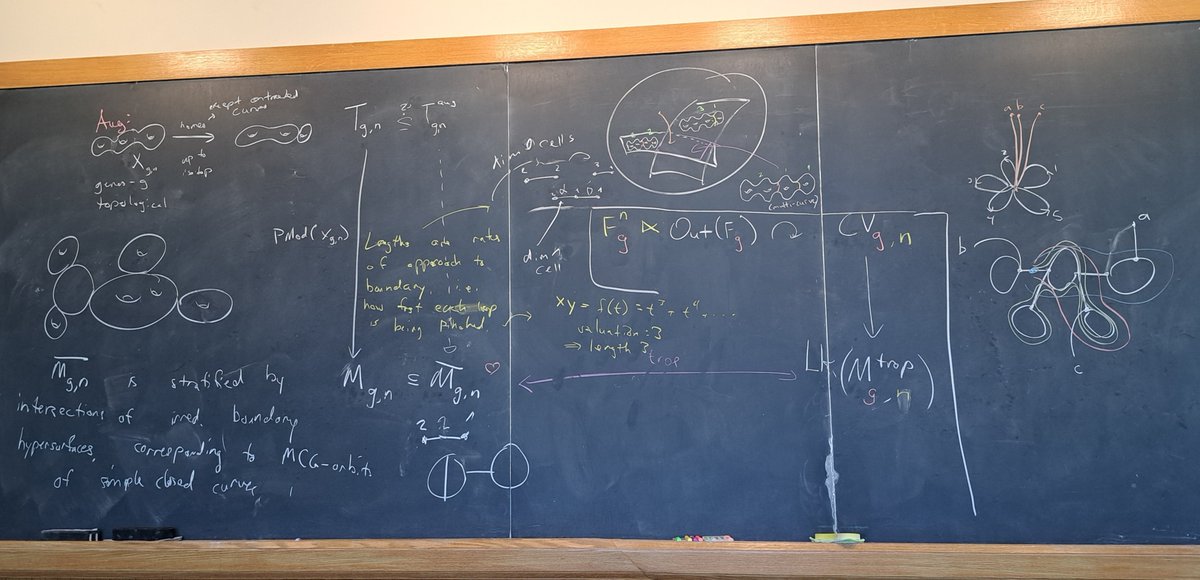 Aug:
homeo
except contracted
curves
up to
isotop
X_{g,n}
genus-g
topological
T_{g,n} ⊆ T_{g,n}^{aug}
?
PMod(X_{g,n})
Lengths are rates
of approach to
boundary, i.e.
how fast each loop
is being pinched
M_{g,n} ⊆ \overline{M}_{g,n} ♡
\overline{M}_{g,n} is stratified by
intersections of irred. boundary
hypersurfaces, corresponding to MCG-orbits
of simple closed curves
2 2 1
dim 0 cells
dim n
cell
(multi-curve)
F_g^n ⋊ Out(F_g) ↷ CV_{g,n}
xy = f(t) = t^3 + t^4 + ...
valuation: 3
⇒ length 3
trop
Lk(M_{g,n}^{trop})
a b c
2 1
3
4 5
a
b
c